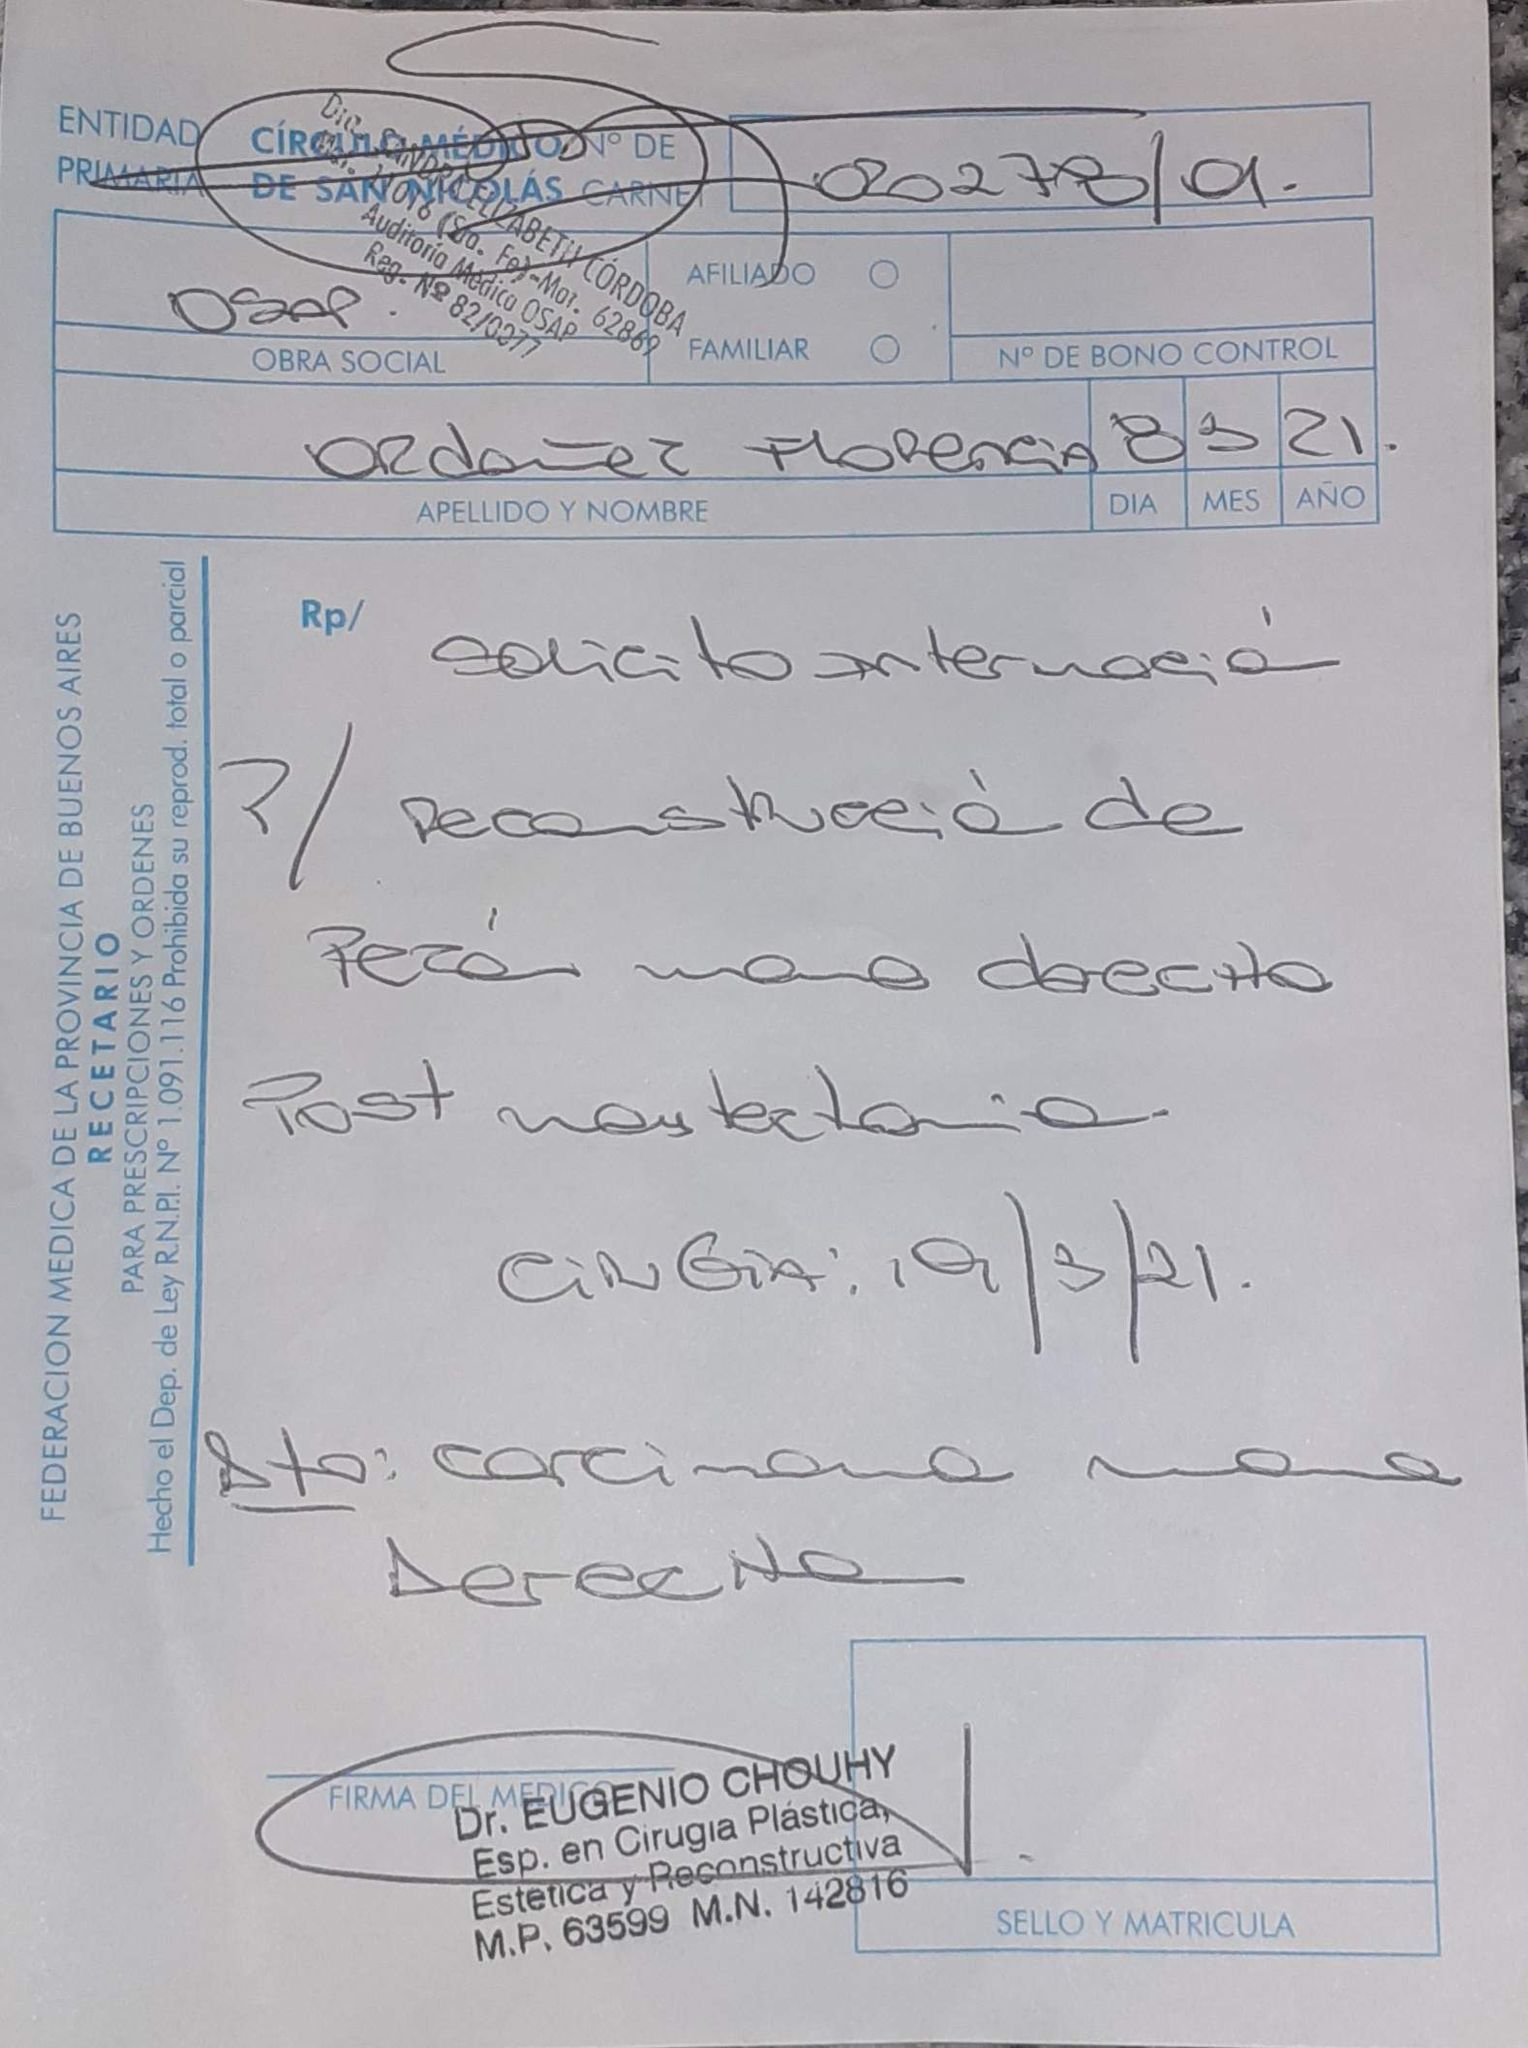 ENTIDAD CÍRCULO MÉDICO Nº DE
PRIMARIA DE SAN NICOLÁS CARNET
020278/01.
ELIZABETH CÓRDOBA
(Sta. Fe)-Mat. 62869
Auditoría Médica OSAP
Reg. Nº 82/0277
OSAP.
OBRA SOCIAL
AFILIADO
FAMILIAR
Nº DE BONO CONTROL
Ordoñez Florencia 8 3 21.
APELLIDO Y NOMBRE DIA MES AÑO
FEDERACION MEDICA DE LA PROVINCIA DE BUENOS AIRES
RECETARIO
PARA PRESCRIPCIONES Y ORDENES
Hecho el Dep. de Ley R.N.P.I. Nº 1.091.116 Prohibida su reprod. total o parcial
Rp/
solicito internació
P/ reconstrucció de
Pezón mama derecha
Post mastectomia.
CiRuGiA: 19/3/21.
Dto: carcinoma mama
Derecha
FIRMA DEL MEDICO
Dr. EUGENIO CHOUHY
Esp. en Cirugia Plástica,
Estética y Reconstructiva
M.P. 63599 M.N. 142816
SELLO Y MATRICULA